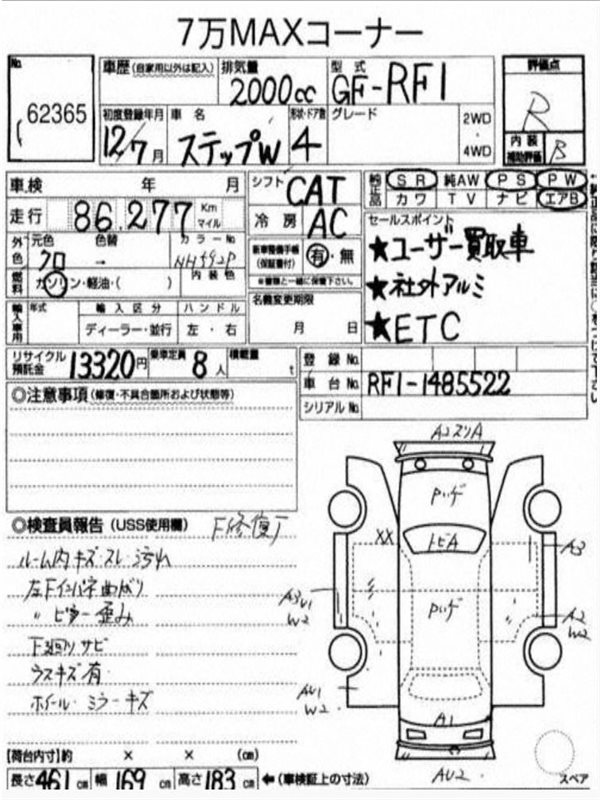 7万MAXコーナー
No.
62365
車歴(自家用以外は記入)
排気量
2000cc
型式
GF-RF1
評価点
R
内装
補助評価
B
初度登録年月
12/7月
車名
ステップW
形状・ドア数
4
グレード
2WD
・
4WD
車検 年 月
シフト
CAT
純正品
SR 純AW PS PW
カワ TV ナビ エアB
走行
86,277
Km
マイル
冷房
AC
セールスポイント
★ユーザー買取車
★社外アルミ
★ETC
外色
元色 色替
クロ →
カラーNo
内装色
新車整備手帳
(保証書付)
有・無
※書類と一緒に保管下さい。
燃料
ガソリン・軽油・( )
名義変更期限
月 日
輸入車用
年式
輸入区分
ディーラー・並行
ハンドル
左・右
リサイクル
預託金
13320円
乗車定員
8人
積載量
t
登録No.
車台No.
RF1-1485522
シリアルNo.
◎注意事項(修復・不具合箇所および状態等)
◎検査員報告(USS使用欄)
F修復丁
ルーム内キズ・スレ・汚れ
左Fインパネ曲がり
〃ピラー歪み
下回りサビ
ウスキズ有
ホイール・ミラーキズ
A2スリA
Pハゲ
XX
トビA
A3
A3U1
W2
Pハゲ
A2
W2
AU1
W2
A1
AU2
スペア
【荷台内寸】約 × × (cm)
長さ461cm 幅169cm 高さ183cm ←(車検証上の寸法)